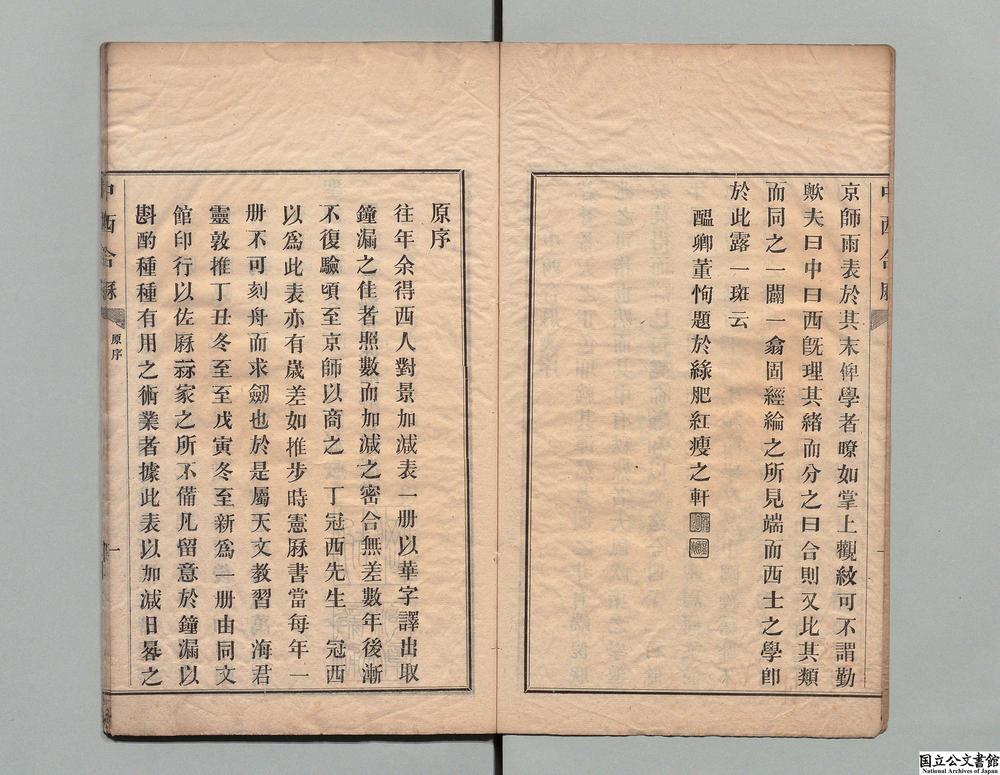 京師兩表於其末俾學者暸如掌上觀紋可不謂勤
歟夫曰中曰西旣理其緒而分之曰合則又比其類
而同之一闢一翕固經綸之所見端而西士之學卽
於此露一斑云
醞卿董恂題於綠肥紅瘦之軒
原序
往年余得西人對景加減表一册以華字譯出取
鐘漏之佳者照數而加減之密合無差數年後漸
不復驗頃至京師以商之 丁冠西先生 冠西
以爲此表亦有歲差如推步時憲厤書當每年一
册不可刻舟而求劔也於是屬天文教習 海君
靈敦推丁丑冬至至戊寅冬至新爲一册由同文
館印行以佐厤祘家之所不僃凡留意於鐘漏以
斟酌種種有用之術業者據此表以加減日晷之
中西合厤
原序
一
国立公文書館
National Archives of Japan